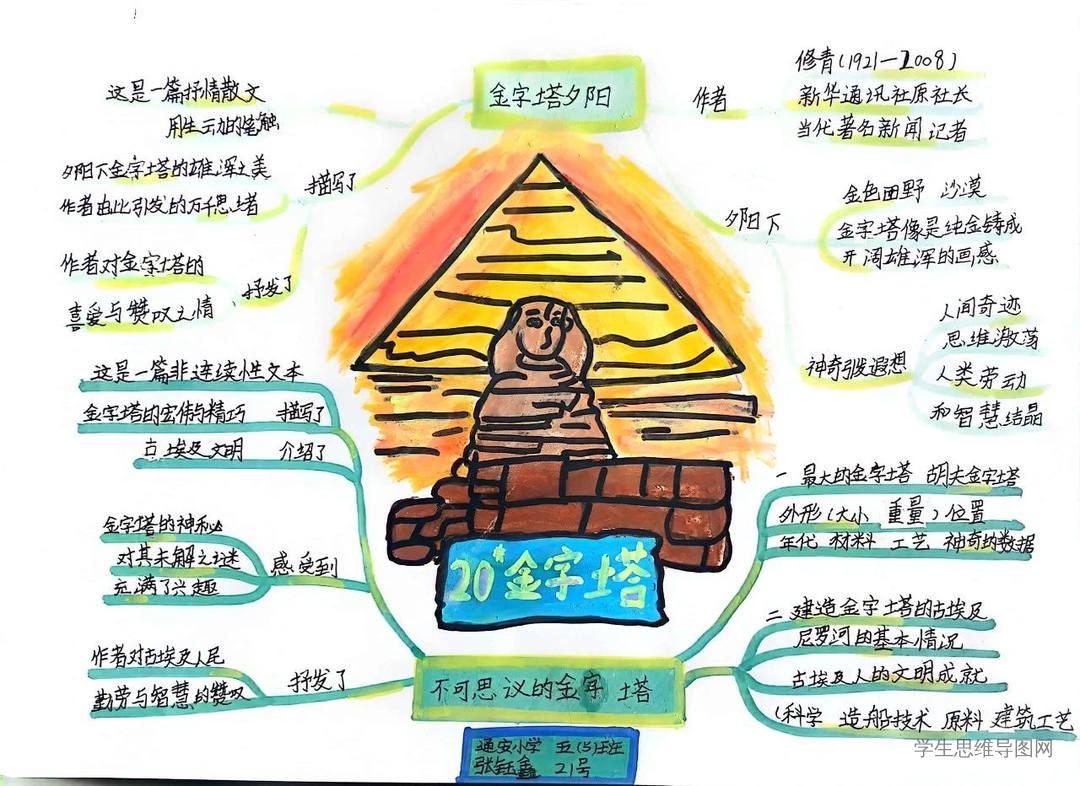 金字塔夕阳
这是一篇抒情散文
用生动的笔触
描写了
夕阳下金字塔的雄浑之美
作者由此引发的万千思绪
抒发了
作者对金字塔的
喜爱与赞叹之情
作者
修青(1921—2008)
新华通讯社原社长
当代著名新闻记者
夕阳下
金色田野 沙漠
金字塔像是纯金铸成
开阔雄浑的画感
神奇引发遐想
人间奇迹
思维激荡
人类劳动
和智慧结晶
20*金字塔
不可思议的金字塔
这是一篇非连续性文本
金字塔的宏伟与精巧 描写了
古埃及文明 介绍了
感受到
金字塔的神秘
对其未解之谜
充满了兴趣
抒发了
作者对古埃及人民
勤劳与智慧的赞叹
一 最大的金字塔 胡夫金字塔
外形(大小 重量)位置
年代 材料 工艺 神奇的数据
二 建造金字塔的古埃及
尼罗河的基本情况
古埃及人的文明成就
(科学 造船技术 原料 建筑工艺
通安小学 五(5)班
张钰鑫 21号
学生思维导图网